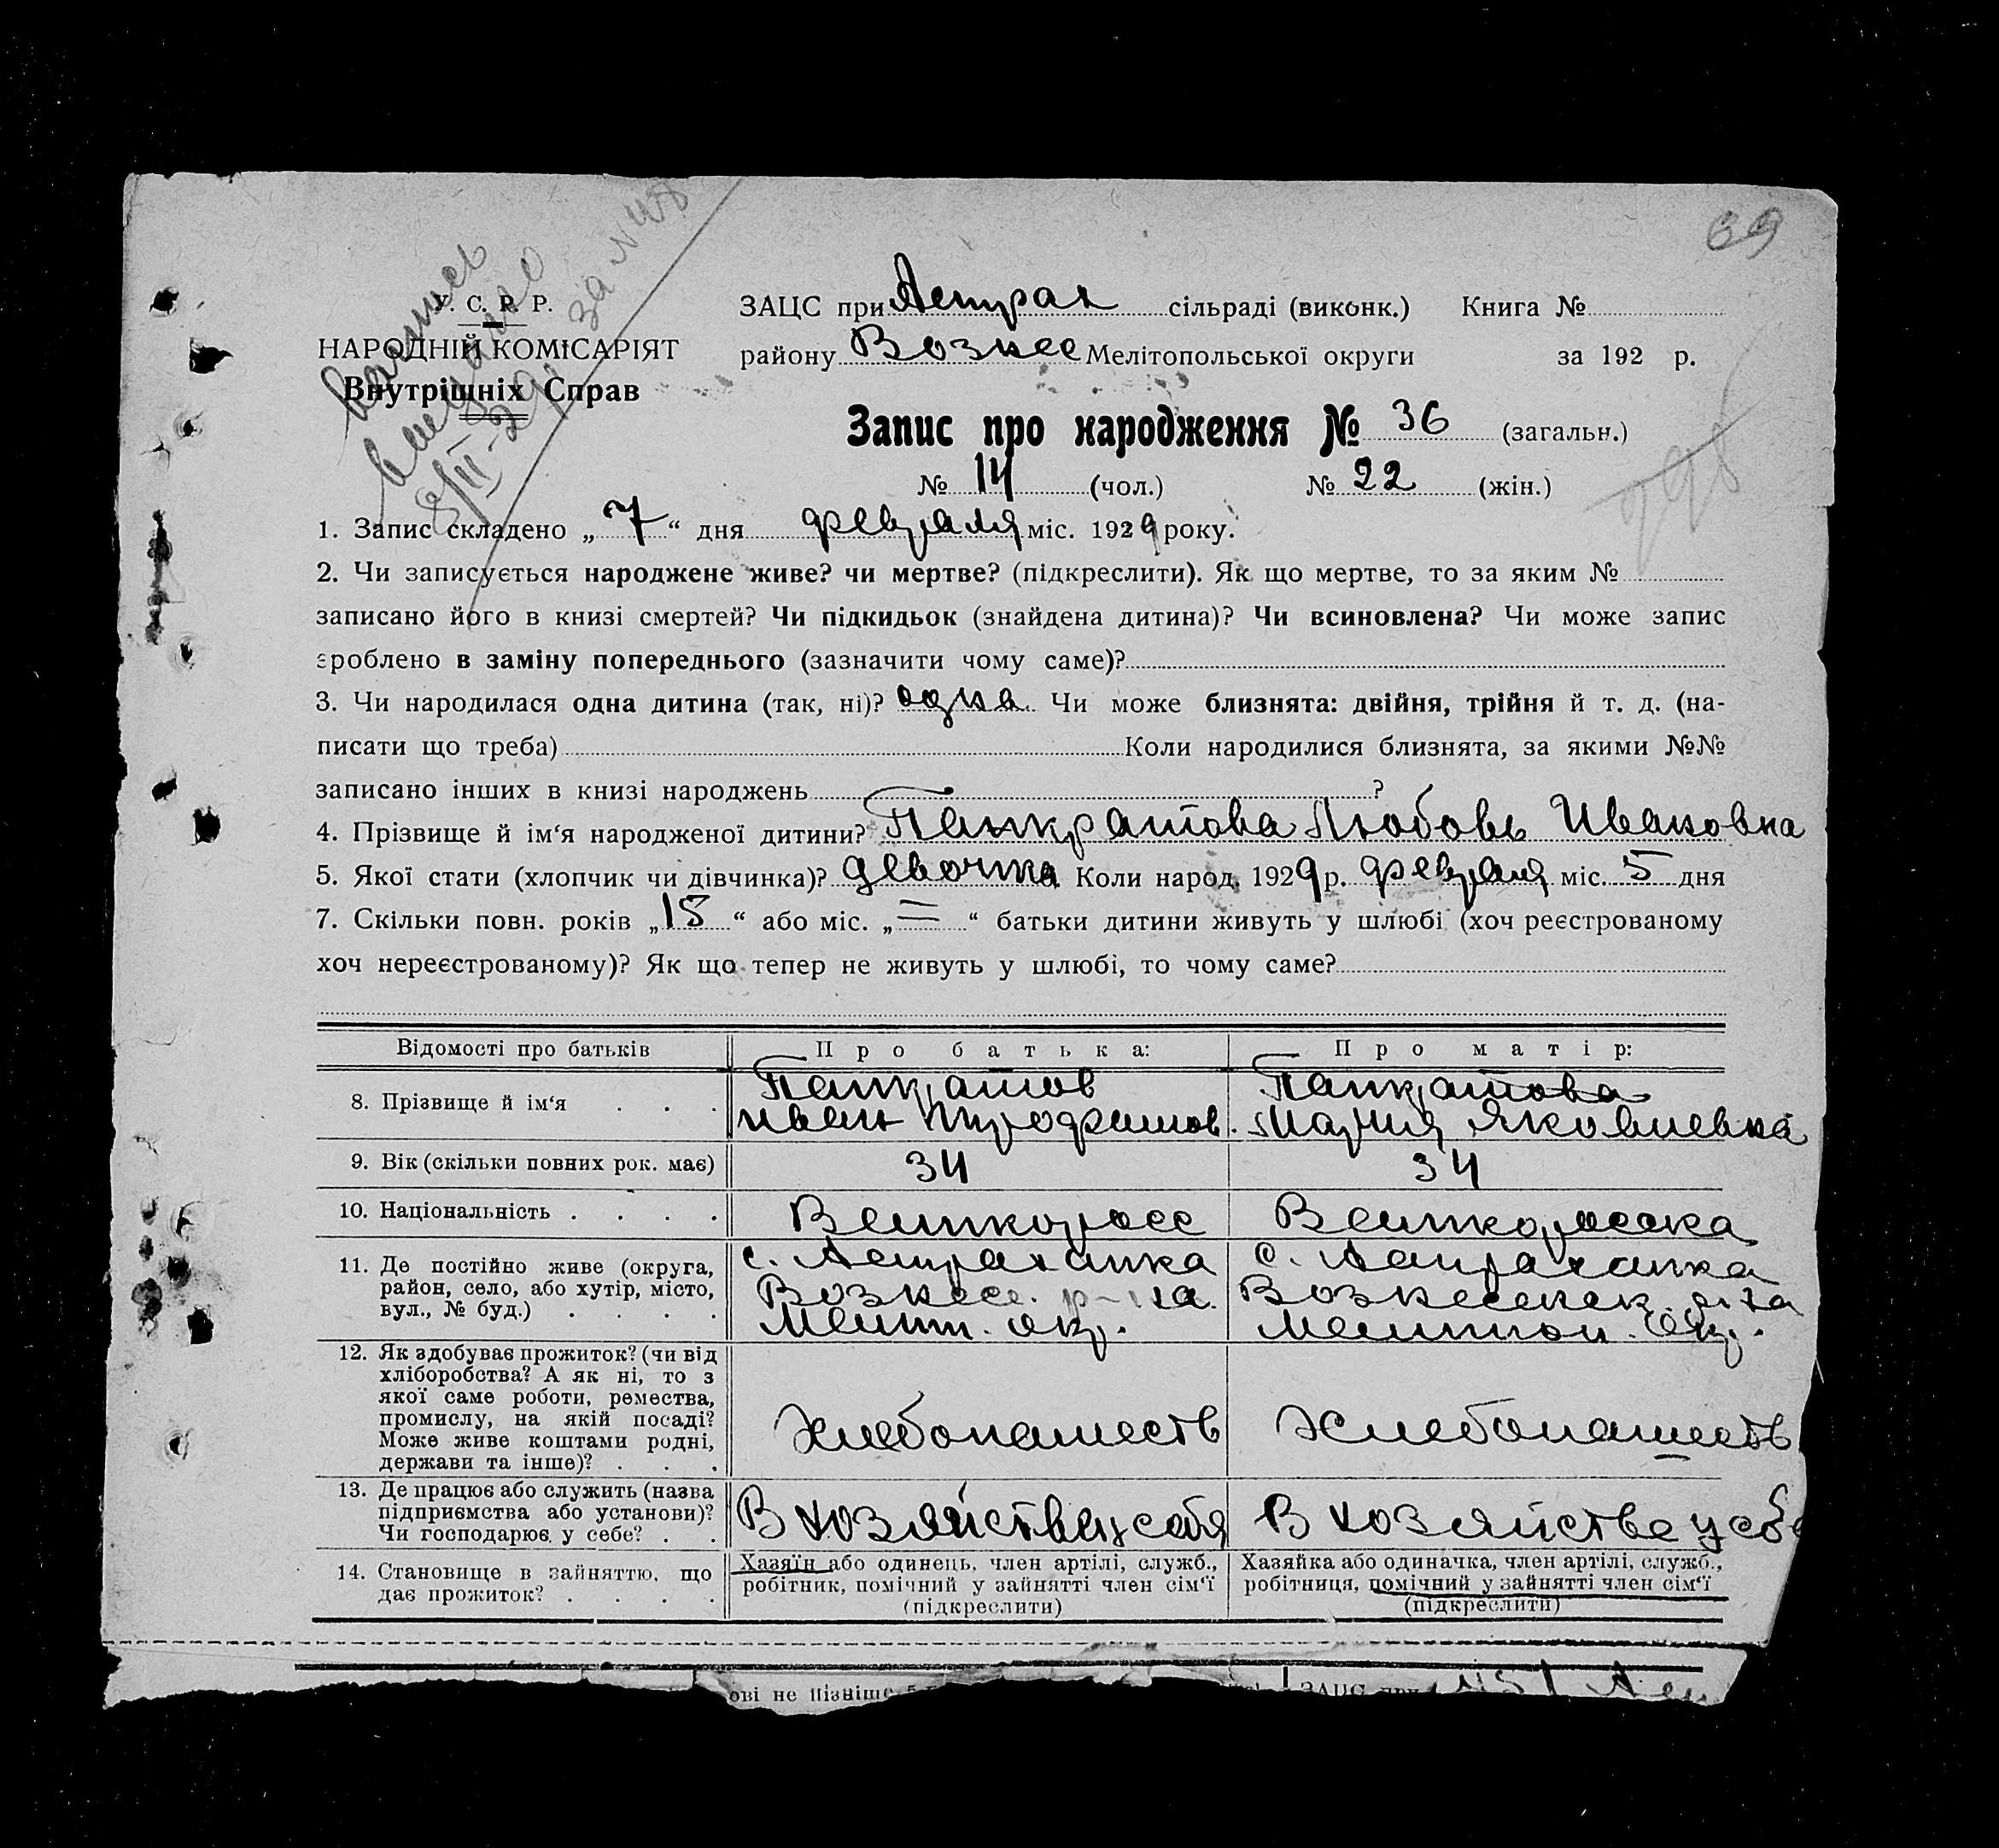 69
У. С. Р. Р.
НАРОДНІЙ КОМІСАРІЯТ
Внутрішніх Справ
ЗАЦС при Астрах сільраді (виконк.) Книга №
району Вознес Мелітопольської округи за 192 р.
Запис про народження № 36 (загальн.)
№ 14 (чол.) № 22 (жін.)
1. Запис складено „ 7 “ дня февраля міс. 1929 року.
2. Чи записується народжене живе? чи мертве? (підкреслити). Як що мертве, то за яким №
записано його в книзі смертей? Чи підкидьок (знайдена дитина)? Чи всиновлена? Чи може запис
зроблено в заміну попереднього (зазначити чому саме)?
3. Чи народилася одна дитина (так, ні)? одна Чи може близнята: двійня, трійня й т. д. (на-
писати що треба) Коли народилися близнята, за якими №№
записано інших в книзі народжень ?
4. Прізвище й ім‘я народженої дитини? Панкратова Любовь Ивановна
5. Якої стати (хлопчик чи дівчинка)? девочка Коли народ. 1929 р. февраля міс. 5 дня
7. Скільки повн. років „ 15 “ або міс. „ = “ батьки дитини живуть у шлюбі (хоч реєстрованому
хоч нереєстрованому)? Як що тепер не живуть у шлюбі, то чому саме?
Відомості про батьків Про батька: Про матір:
8. Прізвище й ім‘я . . . Панкратов Иван Трофимов. Панкратова Мария Яковлевна
9. Вік (скільки повних рок. має) 34 34
10. Національність . . . . Великоросс Великоросска
11. Де постійно живе (округа,
район, село, або хутір, місто,
вул., № буд.) . . . .
с. Астраханка
Вознесе. р-на.
Мелит. окр.
с. Астраханка
Вознесенск. р-на
Мелитоп. Окр.
12. Як здобуває прожиток? (чи від
хліборобства? А як ні, то з
якої саме роботи, ремества,
промислу, на якій посаді?
Може живе коштами родні,
держави та інше)? . . .
Хлебопашеств
Хлебопашеств
13. Де працює або служить (назва
підприємства або установи)?
Чи господарює у себе? . .
В хозяйстве у себя
В хозяйстве у себе
14. Становище в зайняттю, що
дає прожиток? . . . .
Хазяїн або одинець, член артілі, служб.,
робітник, помічний у зайнятті член сім‘ї
(підкреслити)
Хазяйка або одиначка, член артілі, служб.,
робітниця, помічний у зайнятті член сім‘ї
(підкреслити)
ові не пізніше
ЗАЦС при